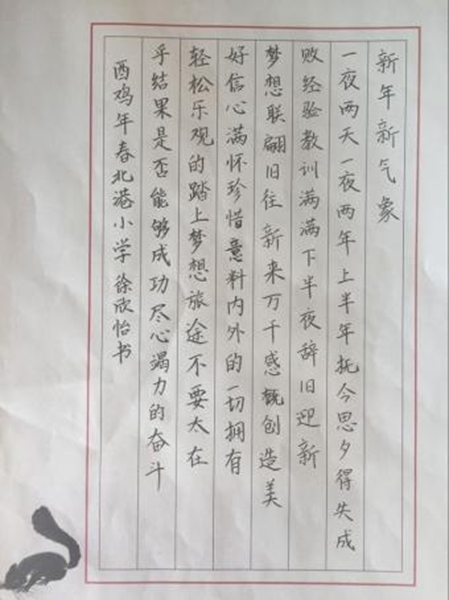 新年新气象
一夜两天一夜两年上半年抚今思夕得失成
败经验教训满满下半夜辞旧迎新
梦想联翩旧往新来万千感慨创造美
好信心满怀珍惜意料内外的一切拥有
轻松乐观的踏上梦想旅途不要太在
乎结果是否能够成功尽心竭力的奋斗
酉鸡年春北港小学徐欣怡书